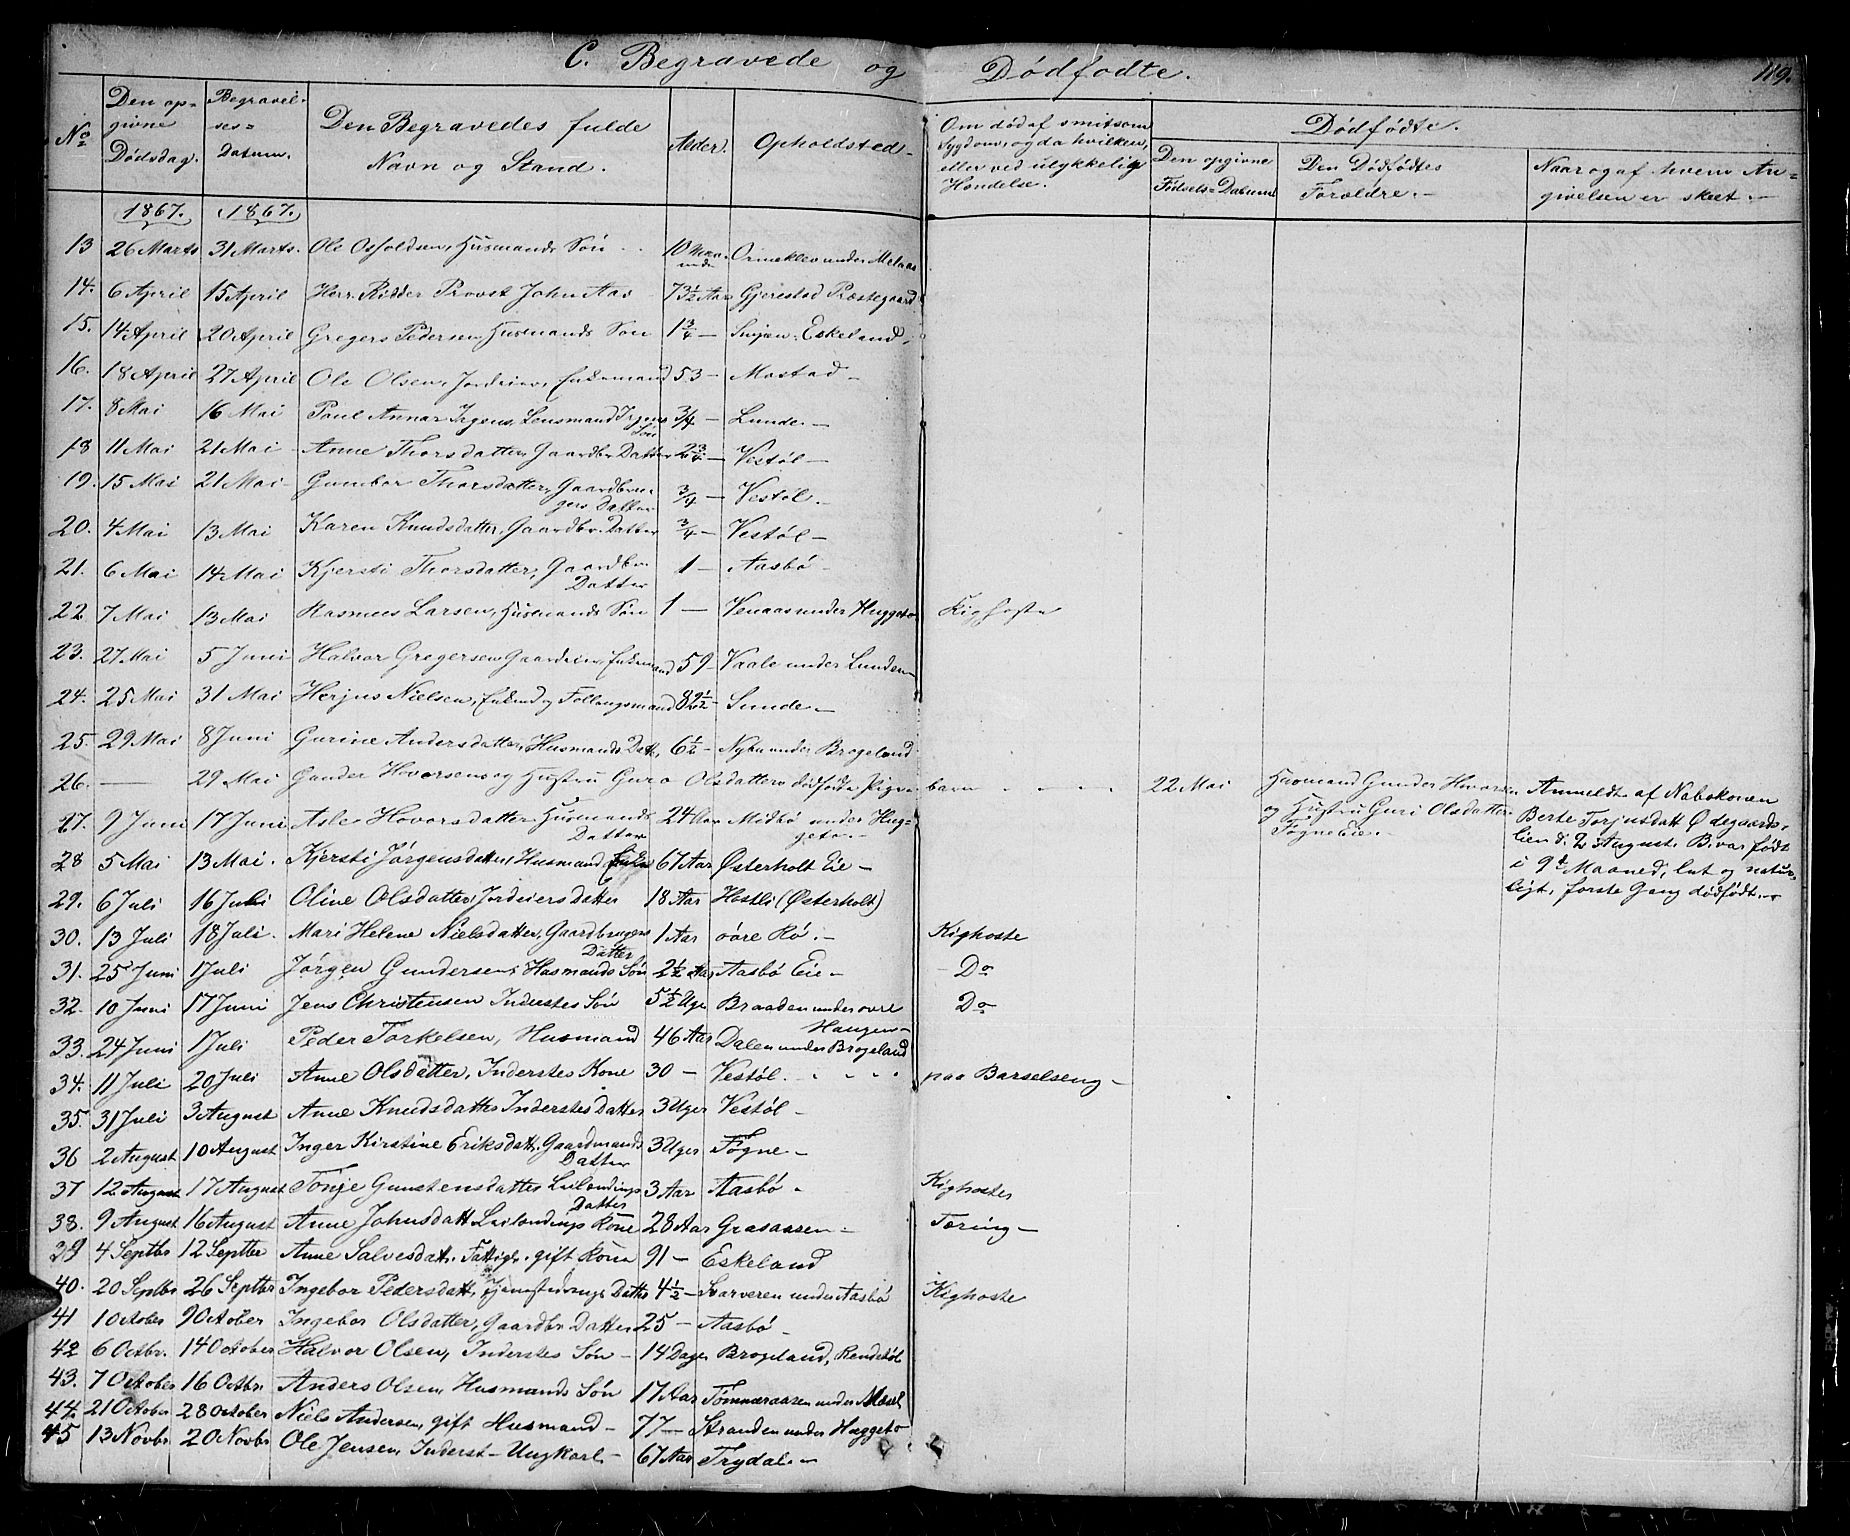 C. Begravede og Dødfødte. 119.
No Den opgivne Dødsdag. Begravelses= Datum. Den Begravedes fulde Navn og Stand. Alder. Opholdsted. Om død af smitsom Sygdom, og da hvilken, eller ved ulykkelig Hændelse. Dødfødte. Den opgivne Fødsels=Datum Den Dødfødtes Forældre. Naar og af hvem Angivelsen er skeet.
1867. 1867.
13 26 Marts 31 Marts. Ole Osfoldsen, Husmands Søn 10 Ormeklev under
14. 6 April 15 April Herr Ridder Provst John Aas 73½ Aar Gjerestad Præstegaard
15. 14 April 20 April Gregers Pedersen Husmands Søn 1¾ — Eskeland.
16. 18 April 27 April Ole Olsen, Jordeier, Enkemand 53 — Mostad —
17. 8 Mai 16 Mai Poul Annar Irgens, Lensmand Irgens Søn ¾ — Lunde. —
18 11 Mai 21 Mai Anne Thorsdatter, Gaardbr. Datter 2¾ — Vestøl —
19. 15 Mai 21 Mai Gunbor Thorsdatter, Gaardbrugers Datter ¾ — Vestøl. —
20. 4 Mai 13 Mai Karen Knudsdatter, Gaardbr. Datter ¾ — Vestøl —
21. 6 Mai 14 Mai Kjersti Thorsdatter, Gaardbr. Datter 1 — Aasbø —
22 7 Mai 13 Mai Rasmus Larsen, Husmands Søn 1 — Venaas under Huggeto Kighoste
23. 27 Mai 5 Juni Halvor Gregersen Gaardeier, Enkemand 59 — Vaale under Lunden
24. 25 Mai 31 Mai Herjus Nielsen, Enkmd og Follaugsmand 89½ — Sunde —
25. 29 Mai 8 Juni Gurine Andersdatter, Husmands Datt. 6½ — under Brogeland
26. — 29 Mai Gunder Hovorsens og Hustru Guro Olsdatters dødfødte Pigebarn 22 Mai Husmand Gunder Hovorsen og Hustru Guri Olsdatter Føgne Eie. — Anmeldt af Nabokonen Berte Torjusdatt Ødegaardslien d. 2 August. B. var født i 9d Maaned, let og naturligt, første Gang dødfødt. —
27. 9 Juni 17 Juni Asle Hovorsdatter Husmands Datter 24 Aar Midbø under Huggeto. —
28 5 Mai 13 Mai. Kjersti Jørgensdatter, Husmand Enke 67 Aar Østerholt Eie —
29. 6 Juli 16 Juli Oline Olsdatter, Jordeiers Datter 18 Aar Hestli (Østerholt)
30. 13 Juli 18 Juli. Mari Helene Nielsdatter, Gaardbrugers Datter 1 Aar øvre Rø. — Kighoste
31. 25 Juni 1 Juli Jørgen Gundersen, Husmands Søn 2½ Aar Aasbø Eie — Do
32. 10 Juni 17 Juni Jens Christensen Inderstes Søn 5½ Uger Braaden under øvre Haugen — Do
33. 24 Juni 1 Juli Peder Torkelsen, Husmand 46 Aar Dalen under Brogeland
34. 11 Juli 20 Juli Anne Olsdatter, Inderstes Kone 30 — Vestøl. paa Barselseng —
35. 31 Juli 3 August Anne Knudsdatter Inderstes Datter 3 Uger Vestøl —
36 2 August 10 August Inger Kirstine Eriksdatt. Gaardmands Datter 3 Uger Føgne —
37 12 August 17 August Tonje Gunstensdatter Leilændings Datter 3 Aar Aasbø — Kighoste
38. 9 August 16 August Anne Johnsdatt Leilændings Kone 28 Aar Grasaasen — Tæring —
39 4 Septbr 12 Septbr Anne Salvesdatt. Fattigl. gift Kone 91 — Eskeland
40. 20 Septbr 26 Septbr Ingebor Pedersdatt, Datter 4½ — Svarveren under Aasbø Kighoste
41 1 October 9 October Ingebor Olsdatter, Gaardbr Datter 25 — Aasbø —
42 6 Octbr. 14 October Halvor Olsen, Inderstes Søn — 14 Dage Brogeland, Rendetøl
43. 7 October 16 Octbr. Anders Olsen, Husmands Søn 17 Aar Tømmeraasen under
44. 21 October 28 October Niels Andersen, gift Husmand — 77 — Stranden under Huggeto
45 13 Novbr 20 Novbr Ole Jensen, Inderst — Ungkarl — 67 Aar Trydal —